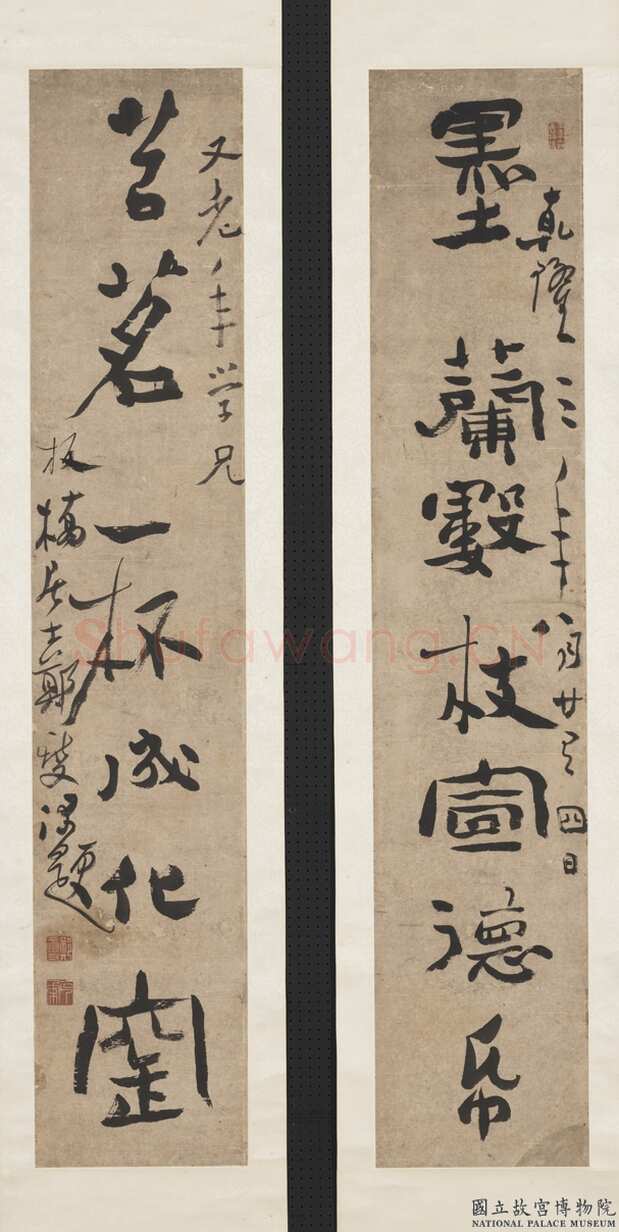 墨蘭數枝宣德帋
乾隆年八月廿又四日
苦茗一杯成化窑
又老年学兄
板橋居士鄭燮題
Shufawang.CN
國立故宮博物院
NATIONAL PALACE MUSEUM